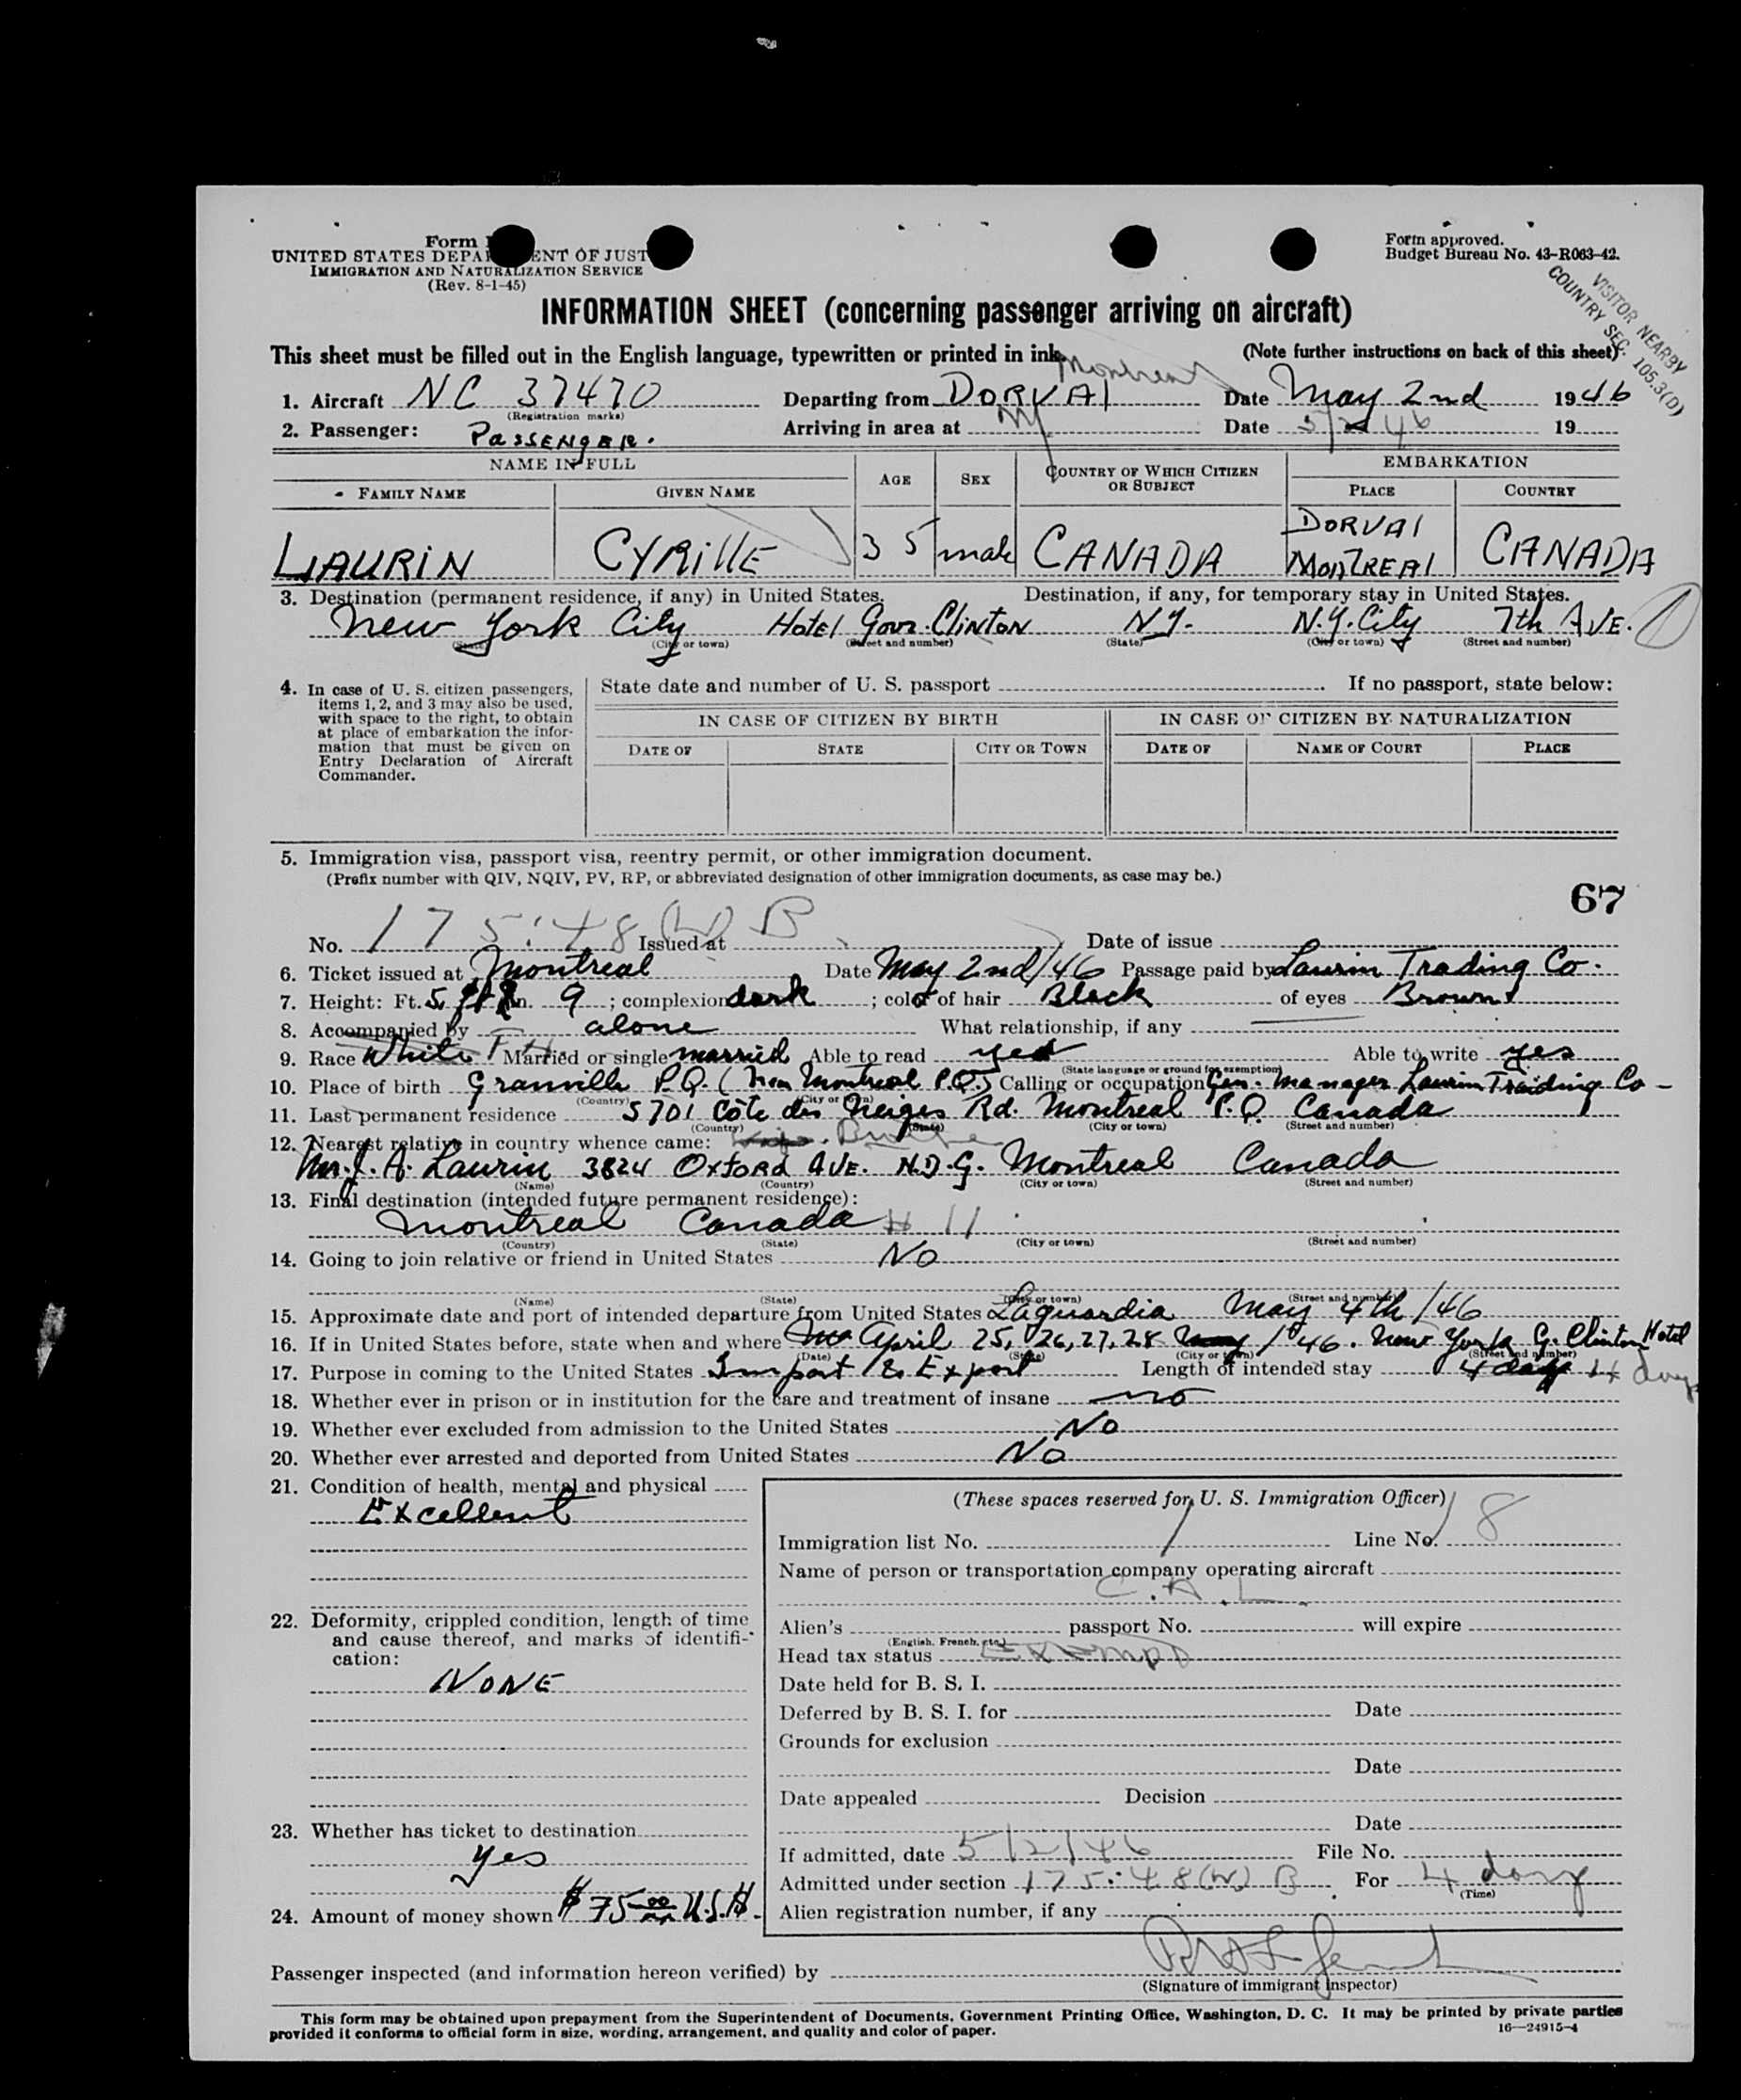 Form
UNITED STATES DEPA ENT OF JUST
IMMIGRATION AND NATURALIZATION SERVICE
(Rev. 8-1-45)
Form approved.
Budget Bureau No. 43-R063-42.
VISITOR NEARBY
COUNTRY SEC. 105.3(D)
INFORMATION SHEET (concerning passenger arriving on aircraft)
This sheet must be filled out in the English language, typewritten or printed in ink. (Note further instructions on back of this sheet)
Montreal
1. Aircraft NC 37470 Departing from DORVAl Date May 2nd 1946
(Registration marks)
2. Passenger: PASSENgER. Arriving in area at NY Date 5/2/46 19
NAME IN FULL AGE SEX COUNTRY OF WHICH CITIZEN OR SUBJECT EMBARKATION
FAMILY NAME GIVEN NAME PLACE COUNTRY
LAURiN CYRillE 35 male CANADA DORVAl MONTREAl CANADA
3. Destination (permanent residence, if any) in United States. Destination, if any, for temporary stay in United States.
New York City Hotel Govr. Clinton N.Y. N.Y. City 7th AVE.
(State) (City or town) (Street and number) (State) (City or town) (Street and number)
4. In case of U. S. citizen passengers, items 1, 2, and 3 may also be used, with space to the right, to obtain at place of embarkation the information that must be given on Entry Declaration of Aircraft Commander.
State date and number of U. S. passport If no passport, state below:
IN CASE OF CITIZEN BY BIRTH IN CASE OF CITIZEN BY NATURALIZATION
DATE OF STATE CITY OR TOWN DATE OF NAME OF COURT PLACE
5. Immigration visa, passport visa, reentry permit, or other immigration document.
(Prefix number with QIV, NQIV, PV, RP, or abbreviated designation of other immigration documents, as case may be.)
67
No. 175:48(W) B Issued at Date of issue
6. Ticket issued at Montreal Date May 2nd/46 Passage paid by Laurin Trading Co.
7. Height: Ft. 5 ft In. 9 ; complexion dark ; color of hair Black of eyes Brown
8. Accompanied by alone What relationship, if any
9. Race White Married or single married Able to read yes Able to write yes
(State language or ground for exemption)
10. Place of birth Granville P.Q. (Near Montreal P.Q.) Calling or occupation Gen. Manager Laurin Trading Co
(Country) (City or town)
11. Last permanent residence 5701 Côte des Neiges Rd. Montreal P.Q. Canada
(Country) (State) (City or town) (Street and number)
12. Nearest relative in country whence came:
Mr. J. A. Laurin 3824 Oxford AVE. N.D.G. Montreal Canada
(Name) (Country) (City or town) (Street and number)
13. Final destination (intended future permanent residence):
Montreal Canada # 11
(Country) (State) (City or town) (Street and number)
14. Going to join relative or friend in United States No
(Name) (State) (City or town) (Street and number)
15. Approximate date and port of intended departure from United States Laguardia May 4th/46
16. If in United States before, state when and where April 25, 26, 27, 28 /46. New York G. Clinton Hotel
(Date) (State) (City or town) (Street and number)
17. Purpose in coming to the United States Import & Export Length of intended stay 4 days 4 days
18. Whether ever in prison or in institution for the care and treatment of insane no
19. Whether ever excluded from admission to the United States No
20. Whether ever arrested and deported from United States No
21. Condition of health, mental and physical
Excellent
22. Deformity, crippled condition, length of time and cause thereof, and marks of identification:
NONE
23. Whether has ticket to destination
yes
24. Amount of money shown $75.00 U.S.$.
(These spaces reserved for U. S. Immigration Officer)
Immigration list No. 1 Line No. 8
Name of person or transportation company operating aircraft
C.A.L.
Alien's passport No. will expire
(English, French, etc.)
Head tax status Exempt
Date held for B. S. I.
Deferred by B. S. I. for Date
Grounds for exclusion
Date
Date appealed Decision
Date
If admitted, date 5/2/46 File No.
Admitted under section 175:48(W) B For 4 days
(Time)
Alien registration number, if any
Passenger inspected (and information hereon verified) by
(Signature of immigrant inspector)
This form may be obtained upon prepayment from the Superintendent of Documents, Government Printing Office, Washington, D. C. It may be printed by private parties
provided it conforms to official form in size, wording, arrangement, and quality and color of paper.
16—24915-4